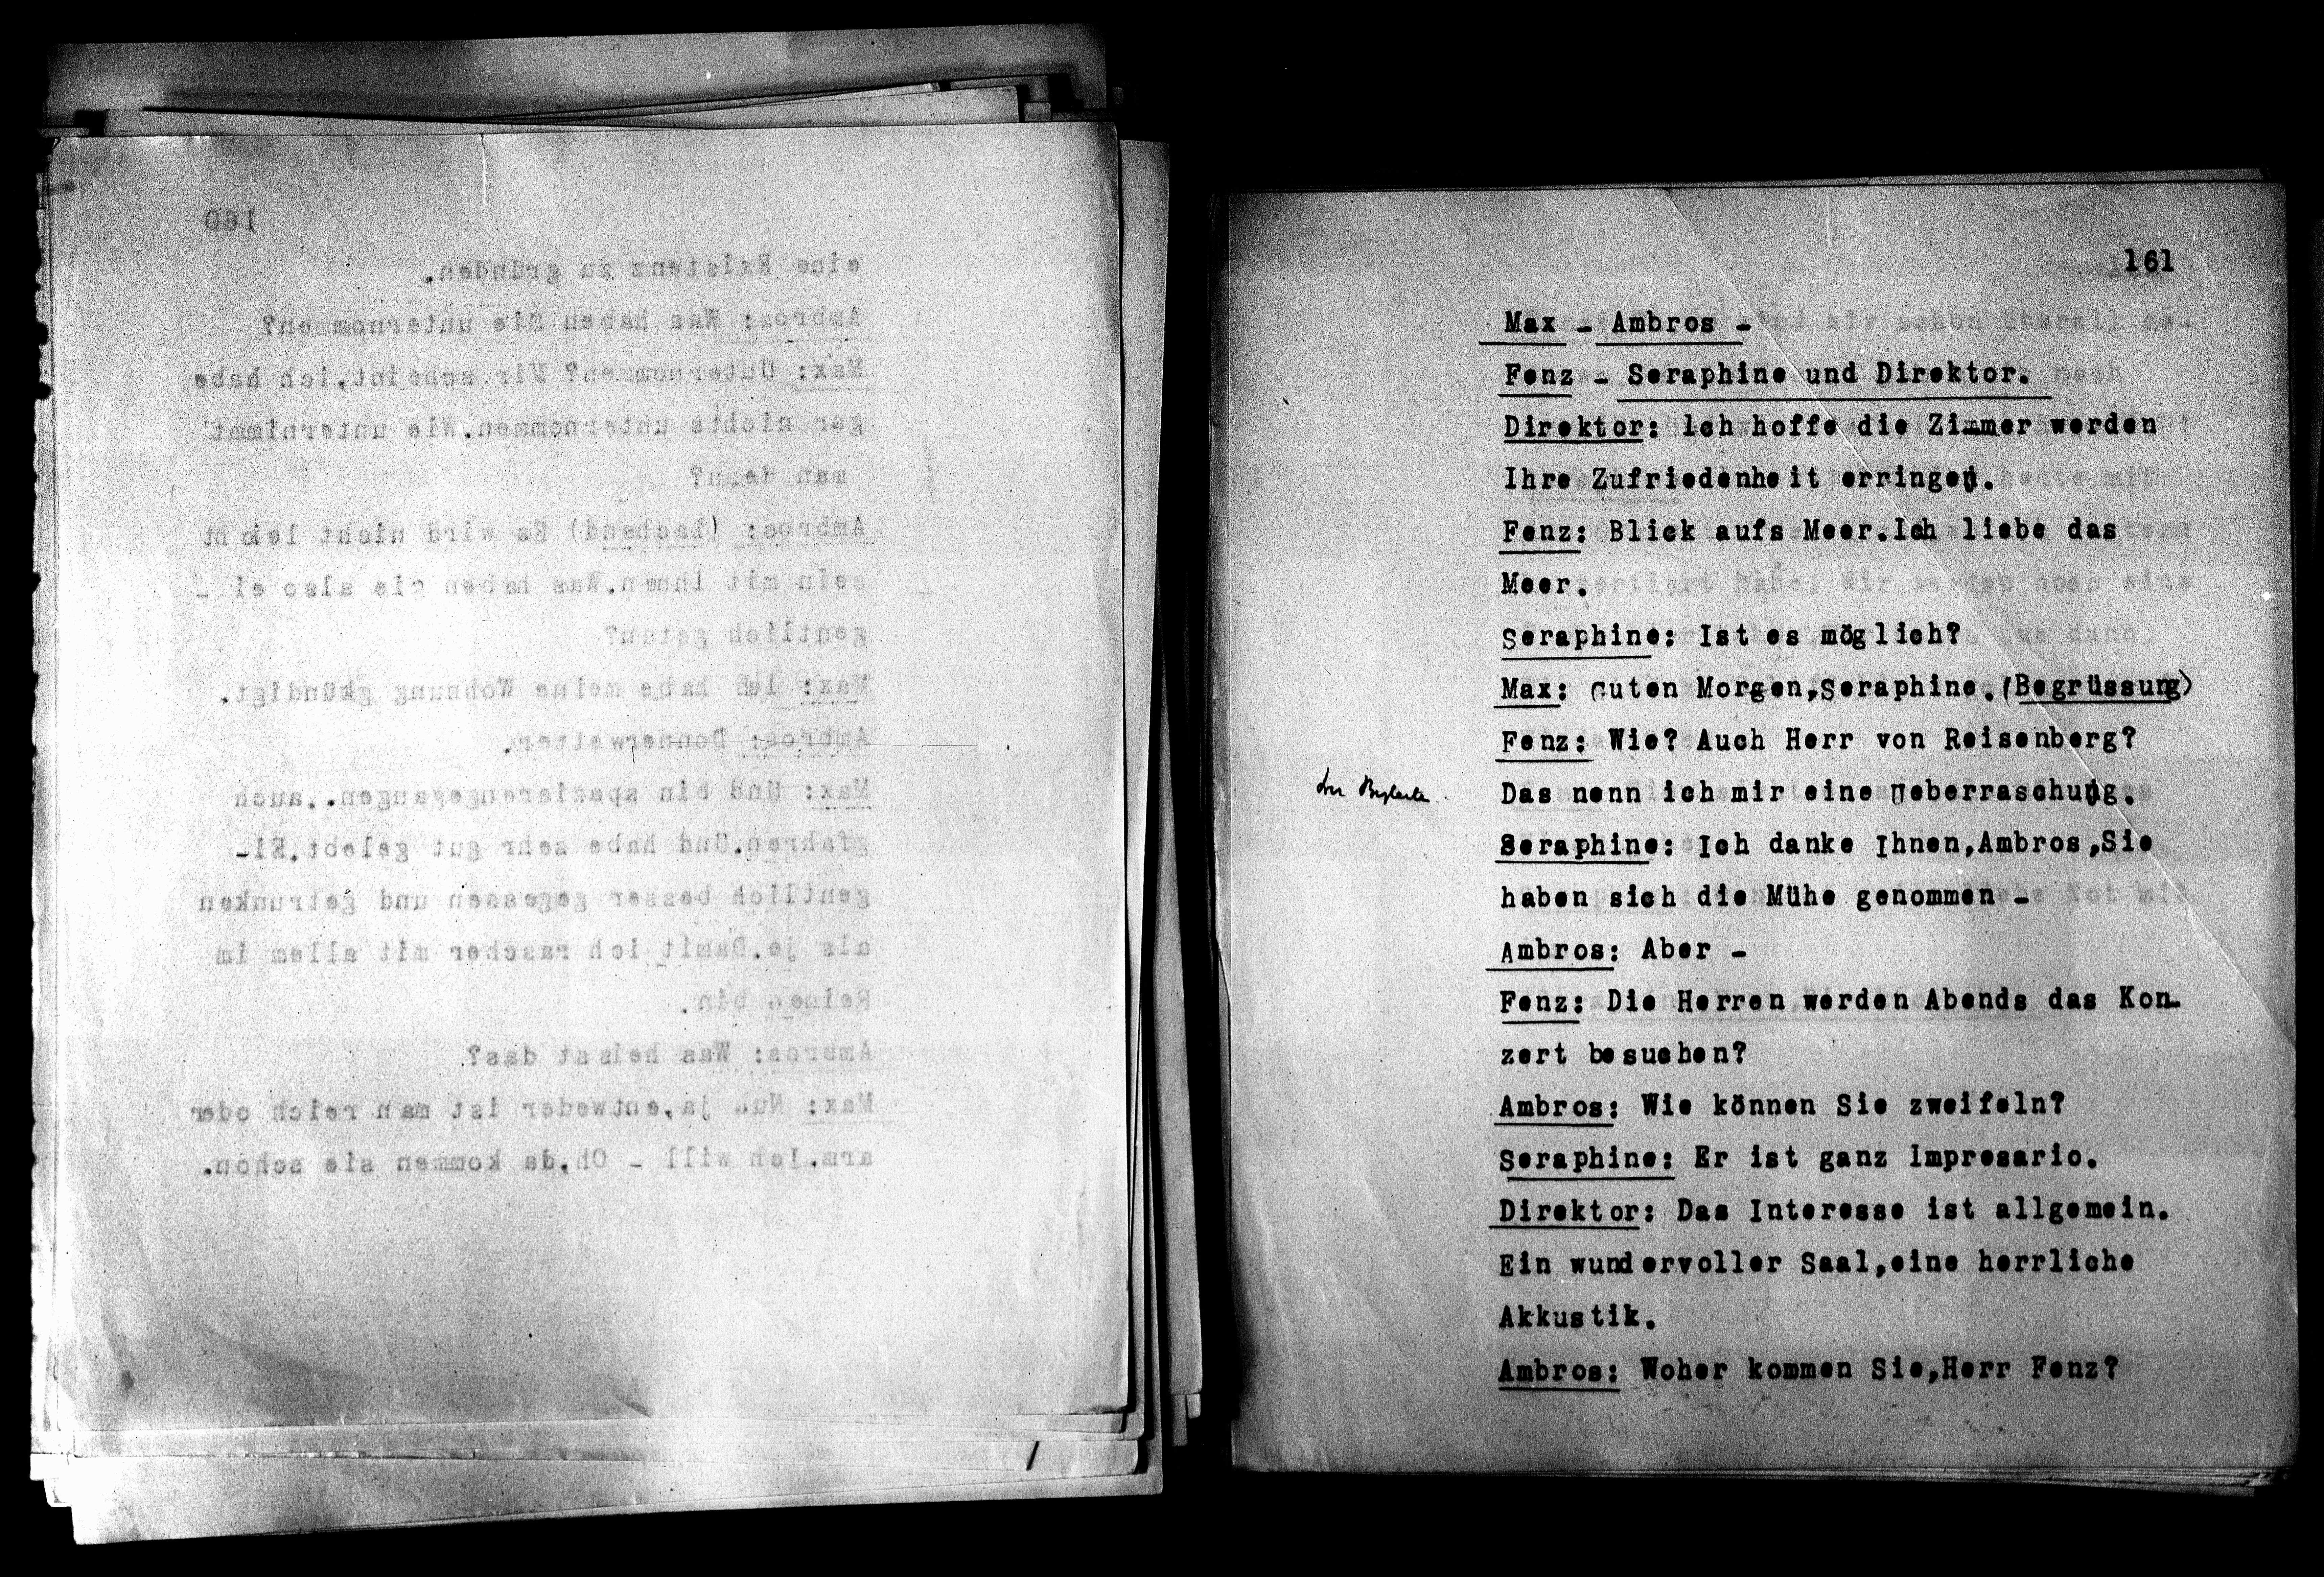 160
eine Existenz zu gründen.
Ambros: Was haben Sie unternommen?
Max: Unternommen? Mir scheint,ich habe
gar nichts unternommen.Wie unternimmt
man denn?
Ambros: (lachend) Es wird nicht leicht
sein mit Ihnen.Was haben sie also ei -
gentlich getan?
Max: Ich habe meine Wohnung gkündigt.
Ambros: Donnerwetter.
Max: Und bin spazierengegangen..auch
gfahren.Und habe sehr gut gelebt.Ei-
gentlich besser gegessen und getrunken
als je.Damit ich rascher mit allem im
Reinen bin.
Ambros: Was heisst das?
Max: Nun ja,entweder ist man reich oder
arm.Ich will - Oh,da kommen sie schon.
161
Max - Ambros -
Fenz - Seraphine und Direktor.
Direktor: Ich hoffe die Zimmer werden
Ihre Zufriedenheit erringen.
Fenz: Blick aufs Meer.Ich liebe das
Meer.
Seraphine: Ist es möglich?
Max: Guten Morgen,Seraphine.(Begrüssung)
Fenz: Wie? Auch Herr von Reisenberg?
Das nenn ich mir eine Ueberraschung.
Seraphine: Ich danke Ihnen,Ambros,Sie
haben sich die Mühe genommen -
Ambros: Aber -
Fenz: Die Herren werden Abends das Kon-
zert besuchen?
Ambros: Wie können Sie zweifeln?
Seraphine: Er ist ganz Impresario.
Direktor: Das Interesse ist allgemein.
Ein wundervoller Saal,eine herrliche
Akkustik.
Ambros: Woher kommen Sie,Herr Fenz?